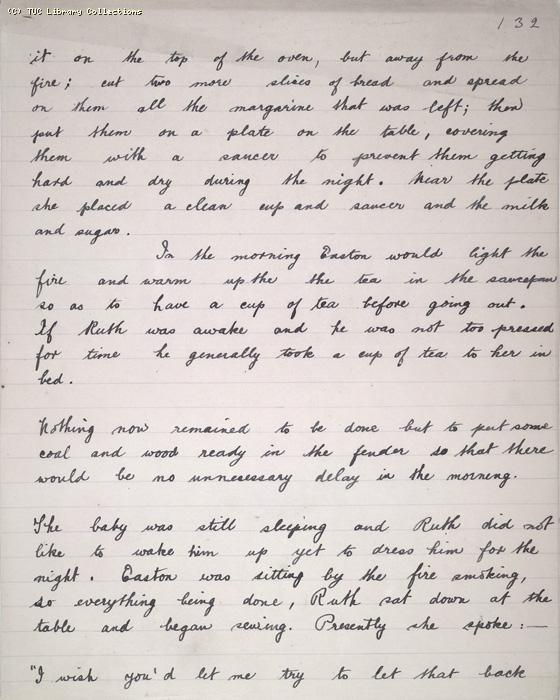 (C) TUC Library Collections
132
it on the top of the oven, but away from the
fire; cut two more slices of bread and spread
on them all the margarine that was left; then
put them on a plate on the table, covering
them with a saucer to prevent them getting
hard and dry during the night. Near the plate
she placed a clean cup and saucer and the milk
and sugar.
In the morning Easton would light the
fire and warm up the the tea in the saucepan
so as to have a cup of tea before going out.
If Ruth was awake and he was not too pressed
for time he generally took a cup of tea to her in
bed.
Nothing now remained to be done but to put some
coal and wood ready in the fender so that there
would be no unnecessary delay in the morning.
The baby was still sleeping and Ruth did not
like to wake him up yet to dress him for the
night. Easton was sitting by the fire smoking,
so everything being done, Ruth sat down at the
table and began sewing. Presently she spoke:—
"I wish you'd let me try to let that back